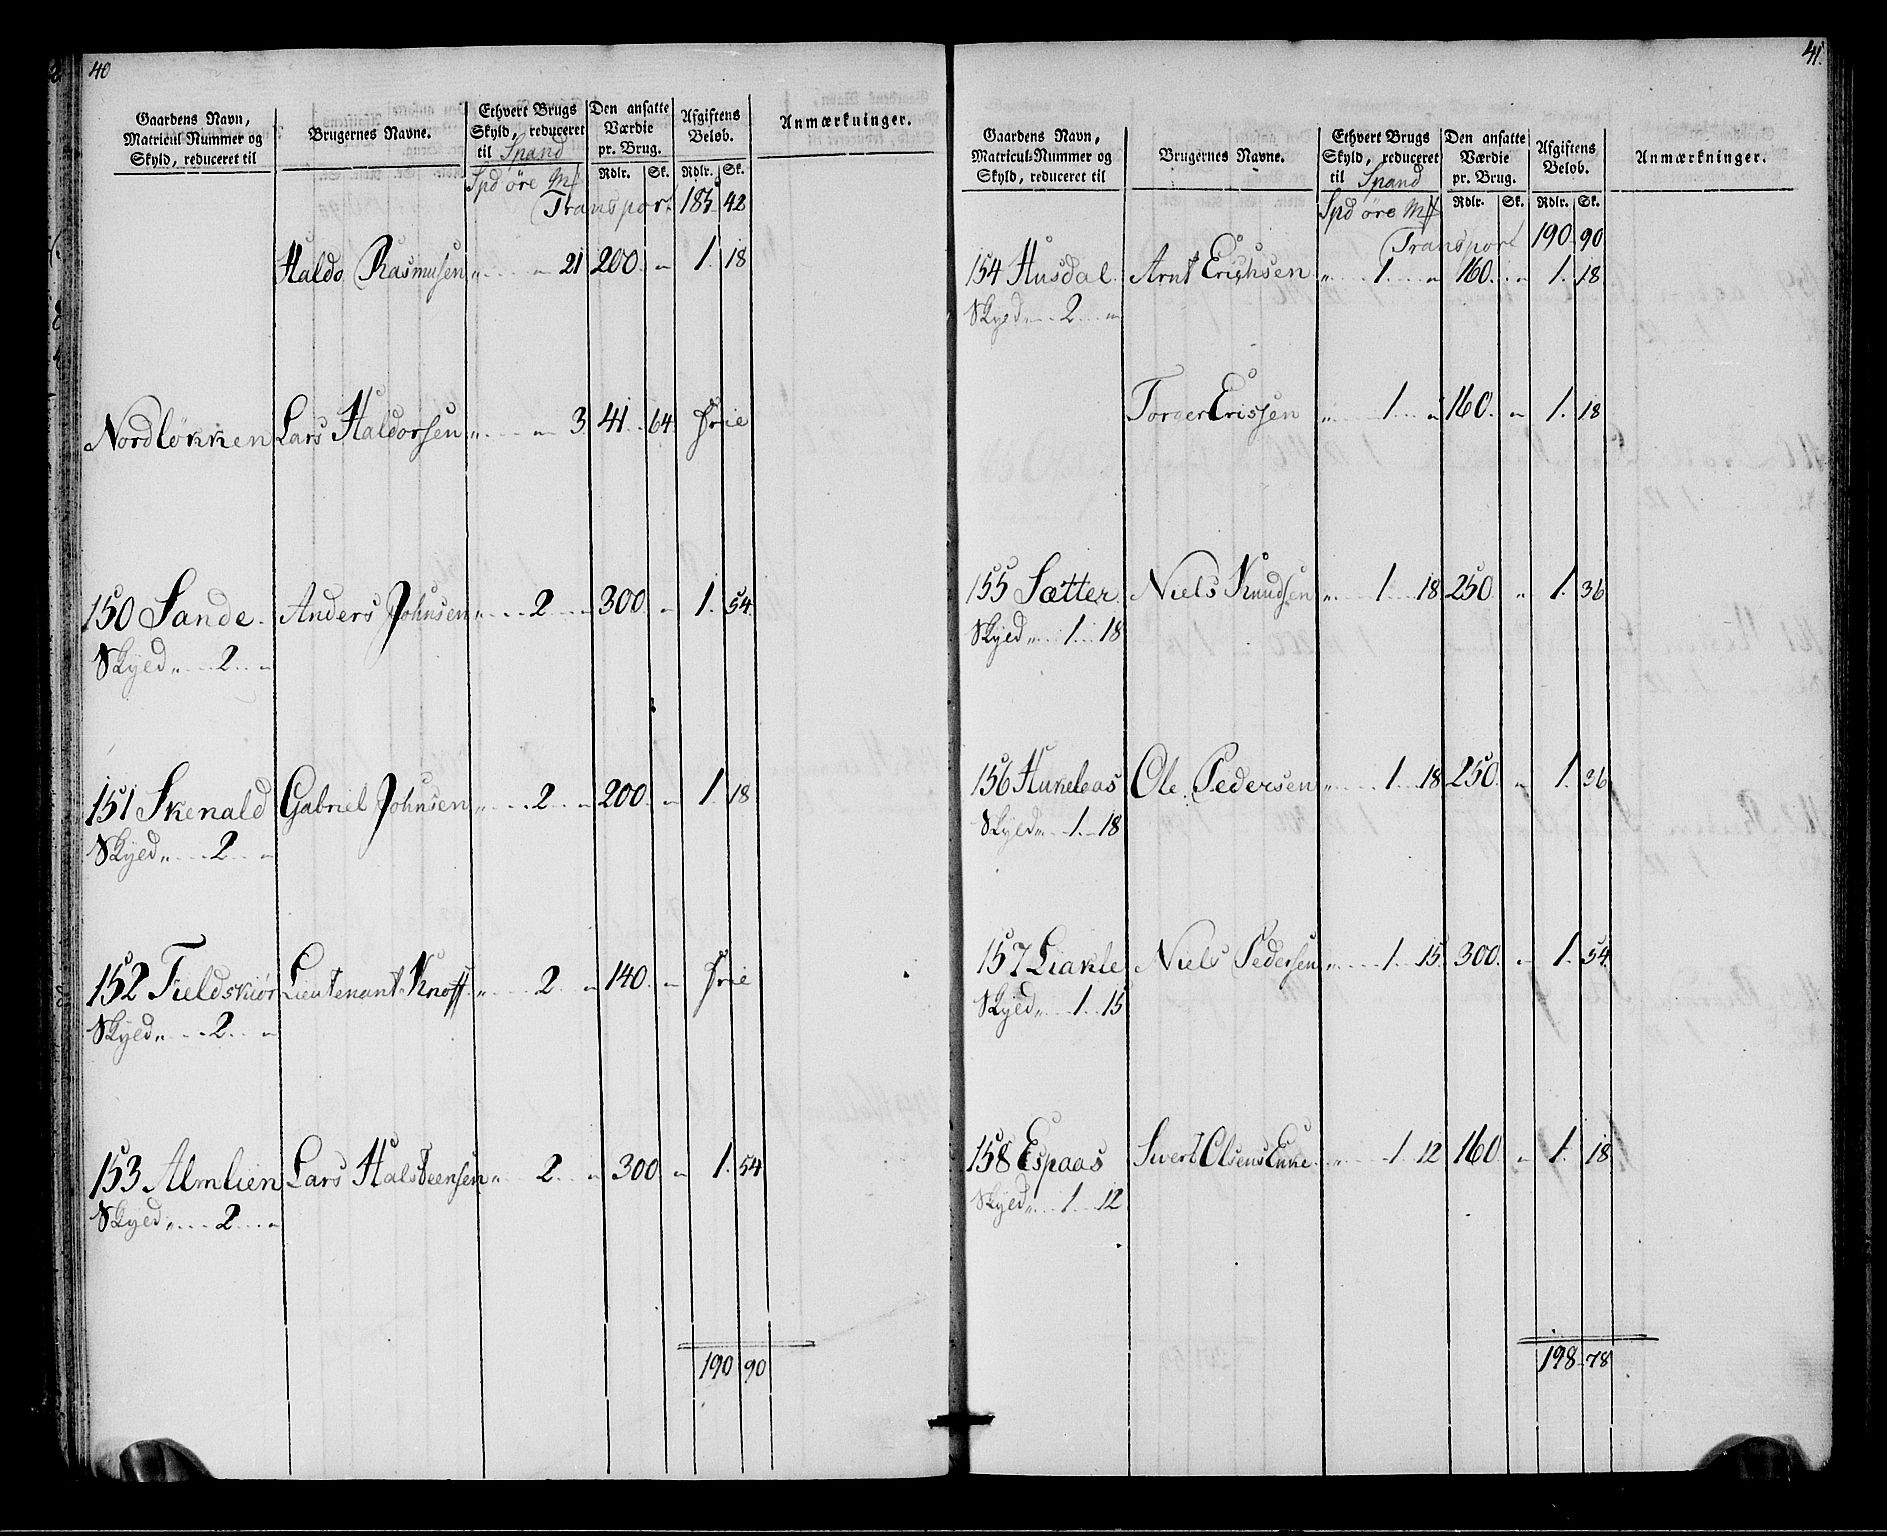 40
Gaardens Navn, Matricul-Nummer og Skyld, reduceret til
Brugernes Navne.
Ethvert Brugs Skyld, reduceret til Spand
Den ansatte Værdie pr. Brug.
Afgiftens Beløb.
Anmærkninger.
Spd øre Mk
Rdlr. Sk. Rdlr. Sk.
Transport 185 42
Haldo Rasmusen „ „ 21 200 „ 1 18
Nordløkken Lars Haldorsen „ „ 3 41 64 Frie
150 Sande Anders Johnsen „ 2 „ 300 „ 1 54
Skyld „ 2 „
151 Skenald Gabriel Johnsen „ 2 „ 200 „ 1 18
Skyld „ 2 „
152 Fieldskiør Lieutenant Knoff „ 2 „ 140 „ Frie
Skyld „ 2 „
153 Almlien Lars Halsteensen „ 2 „ 300 „ 1 54
Skyld „ 2 „
190 90
41
Gaardens Navn, Matricul-Nummer og Skyld, reduceret til
Brugernes Navne.
Ethvert Brugs Skyld, reduceret til Spand
Den ansatte Værdie pr. Brug.
Afgiftens Beløb.
Anmærkninger.
Spd øre Mk
Rdlr. Sk. Rdlr. Sk.
Transport 190 90
154 Husdal Arnt Erichsen „ 1 „ 160 „ 1 18
Skyld „ 2 „
Torger Erissen „ 1 „ 160 „ 1 18
155 Sætter Niels Knudsen „ 1 18 250 „ 1 36
Skyld „ 1 18
156 Hukeleas Ole Pedersen „ 1 18 250 „ 1 36
Skyld „ 1 18
157 Liakle Niels Pedersen „ 1 15 300 „ 1 54
Skyld „ 1 15
158 Espaas Sivert Olsens Enke „ 1 12 160 „ 1 18
Skyld „ 1 12
198 78